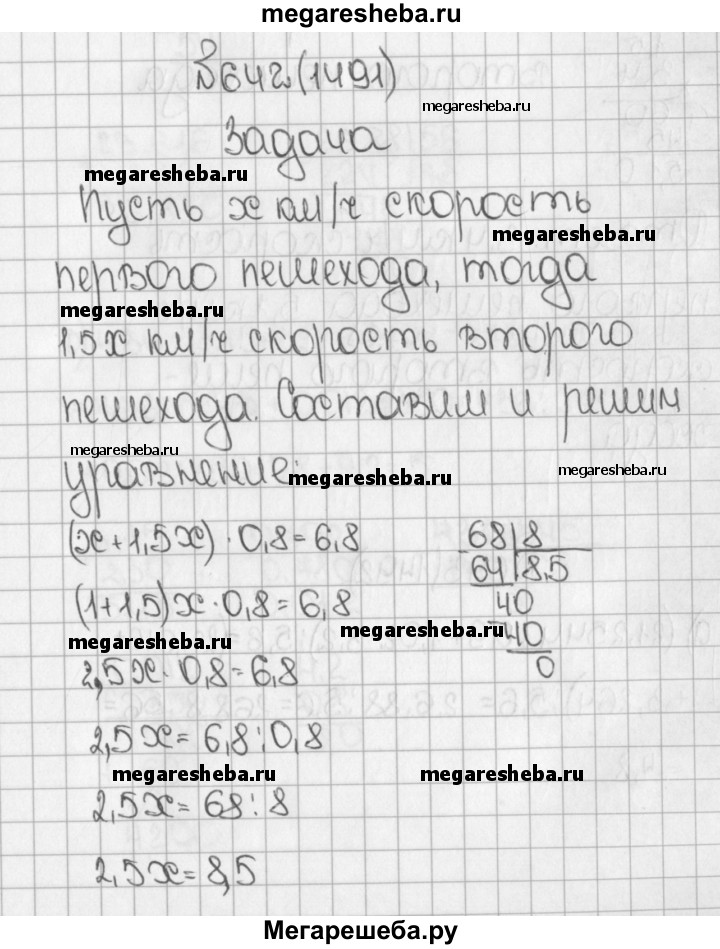 megaresheba.ru
№642(1491)
megaresheba.ru
Задача
megaresheba.ru
Пусть x км/ч скорость
megaresheba.ru
первого пешехода, тогда
megaresheba.ru
1,5x км/ч скорость второго
пешехода. Составим и решим
megaresheba.ru
уравнение:
megaresheba.ru
(x+1,5x)·0,8=6,8
68|8
(1+1,5)x·0,8=6,8
64|8,5
40
megaresheba.ru
megaresheba.ru
-40
2,5x·0,8=6,8
0
2,5x=6,8:0,8
megaresheba.ru
megaresheba.ru
2,5x=68:8
2,5x=8,5
Мегарешеба.ру